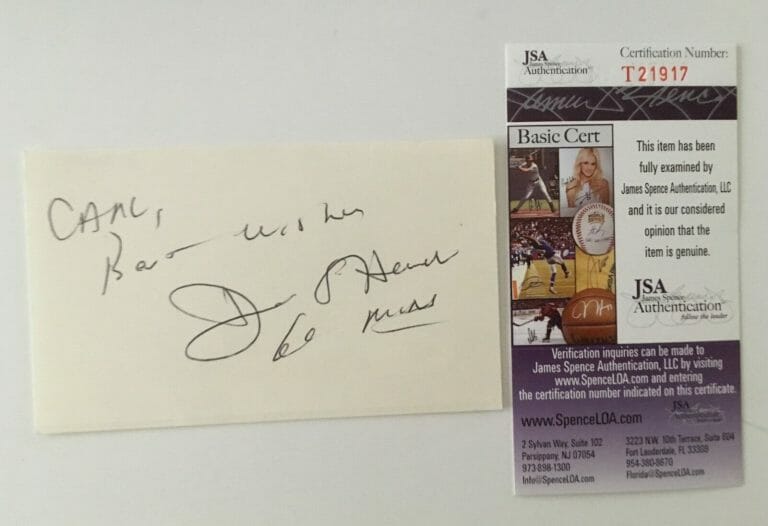 CARL,
Best wishes
Don S Hewitt
60 Mins
JSA
James Spence
Authentication
Certification Number:
T21917
Basic Cert
This item has been
fully examined by
James Spence Authentication, LLC
and it is our considered
opinion that the
item is genuine.
JSA
James Spence
Authentication
follow the leader
Verification inquiries can be made to
James Spence Authentication, LLC by visiting
www.SpenceLOA.com and entering
the certification number indicated on this certificate.
www.SpenceLOA.com
JSA
Authentication
2 Sylvan Way, Suite 102
Parsippany, NJ 07054
973-898-1300
Info@SpenceLOA.com
3223 N.W. 10th Terrace, Suite 604
Fort Lauderdale, FL 33309
954-380-8670
Florida@SpenceLOA.com